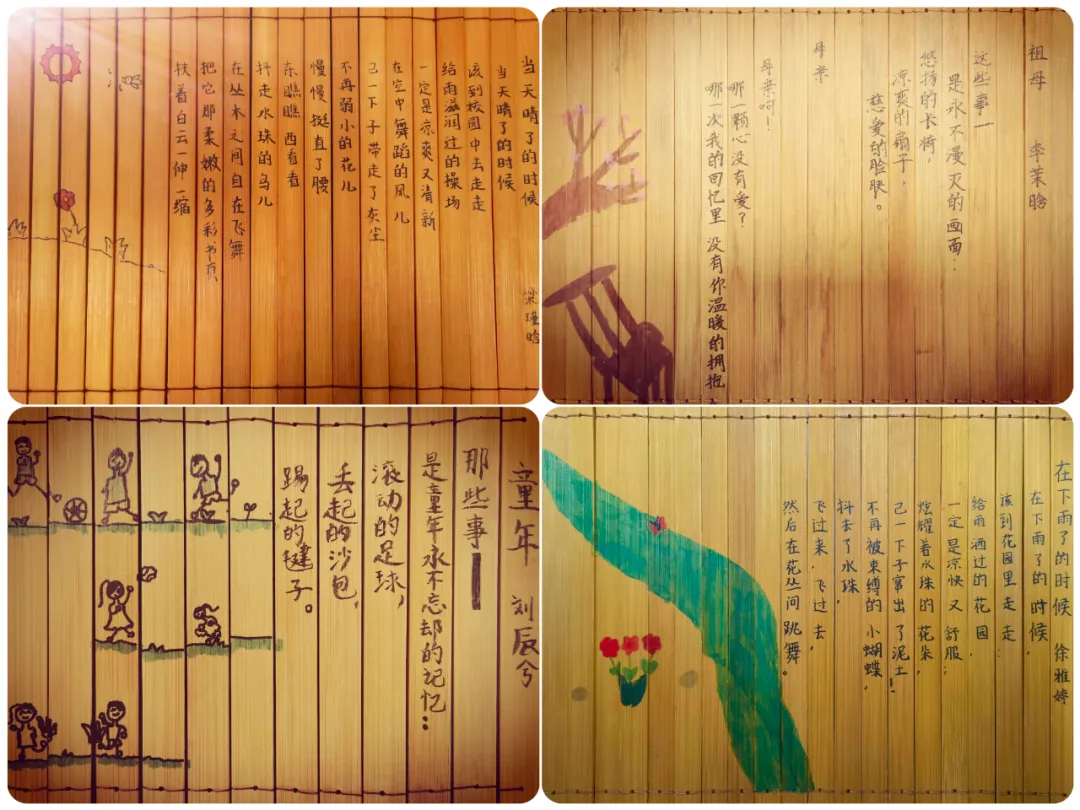 当天晴了的时候
梁瑾晗
当天晴了的时候
该到校园中去走走
给雨滋润过的操场
一定是凉爽又清新
在空中舞蹈的风儿
已一下子带走了灰尘
不再弱小的花儿
慢慢挺直了腰
东瞧瞧西看看
抖走水珠的鸟儿
在丛木之间自在飞舞
把它那柔嫩的多彩书页
扶着白云一伸一缩
祖母 李茉晗
这些事——
是永不漫灭的画面:
悠扬的长椅,
凉爽的扇子,
慈爱的脸肤。
母亲
母亲呵!
哪一颗心没有爱?
哪一次我的回忆里 没有你温暖的拥抱
童年 刘辰兮
那些事——
是童年永不忘却的记忆:
滚动的足球,
丢起的沙包,
踢起的毽子。
在下雨了的时候 徐雅婷
在下雨了的时候,
该到花园里走走:
给雨洒过的花园
一定是凉快又舒服;
炫耀着水珠的花朵,
已一下子窜出了泥土!
不再被束缚的小蝴蝶,
抖去了水珠,
飞过来,飞过去,
然后在花丛间跳舞。